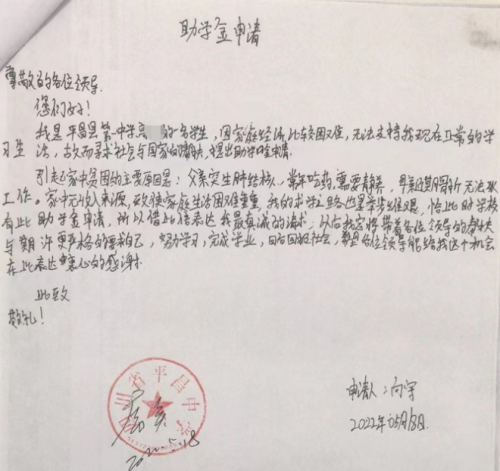 助学金申请
尊敬的各位领导
您们好!
我是平昌县第一中学高 的一名学生,因家庭经济比较困难,无法支持我现在正常的学
习生活,故而寻求社会与国家的帮助,提出助学金申请。
引起家中贫困的主要原因是:父亲突生肺结核,常年吃药,需要静养,早期间无法
工作。家中无收入来源,致使家庭生活困难重重,我的求学之路也是举步维艰,恰此时学校
有此助学金申请,所以借此信表达我最真诚的请求,以后我定将带着各位领导的帮扶
与期许更严格的要求自己,努力学习,完成学业,回报国家社会,希望各位领导能给我这个机会
在此表达衷心的感谢.
此致
敬礼!
四川省平昌中学
申请人:向宇
2022年05月18日.